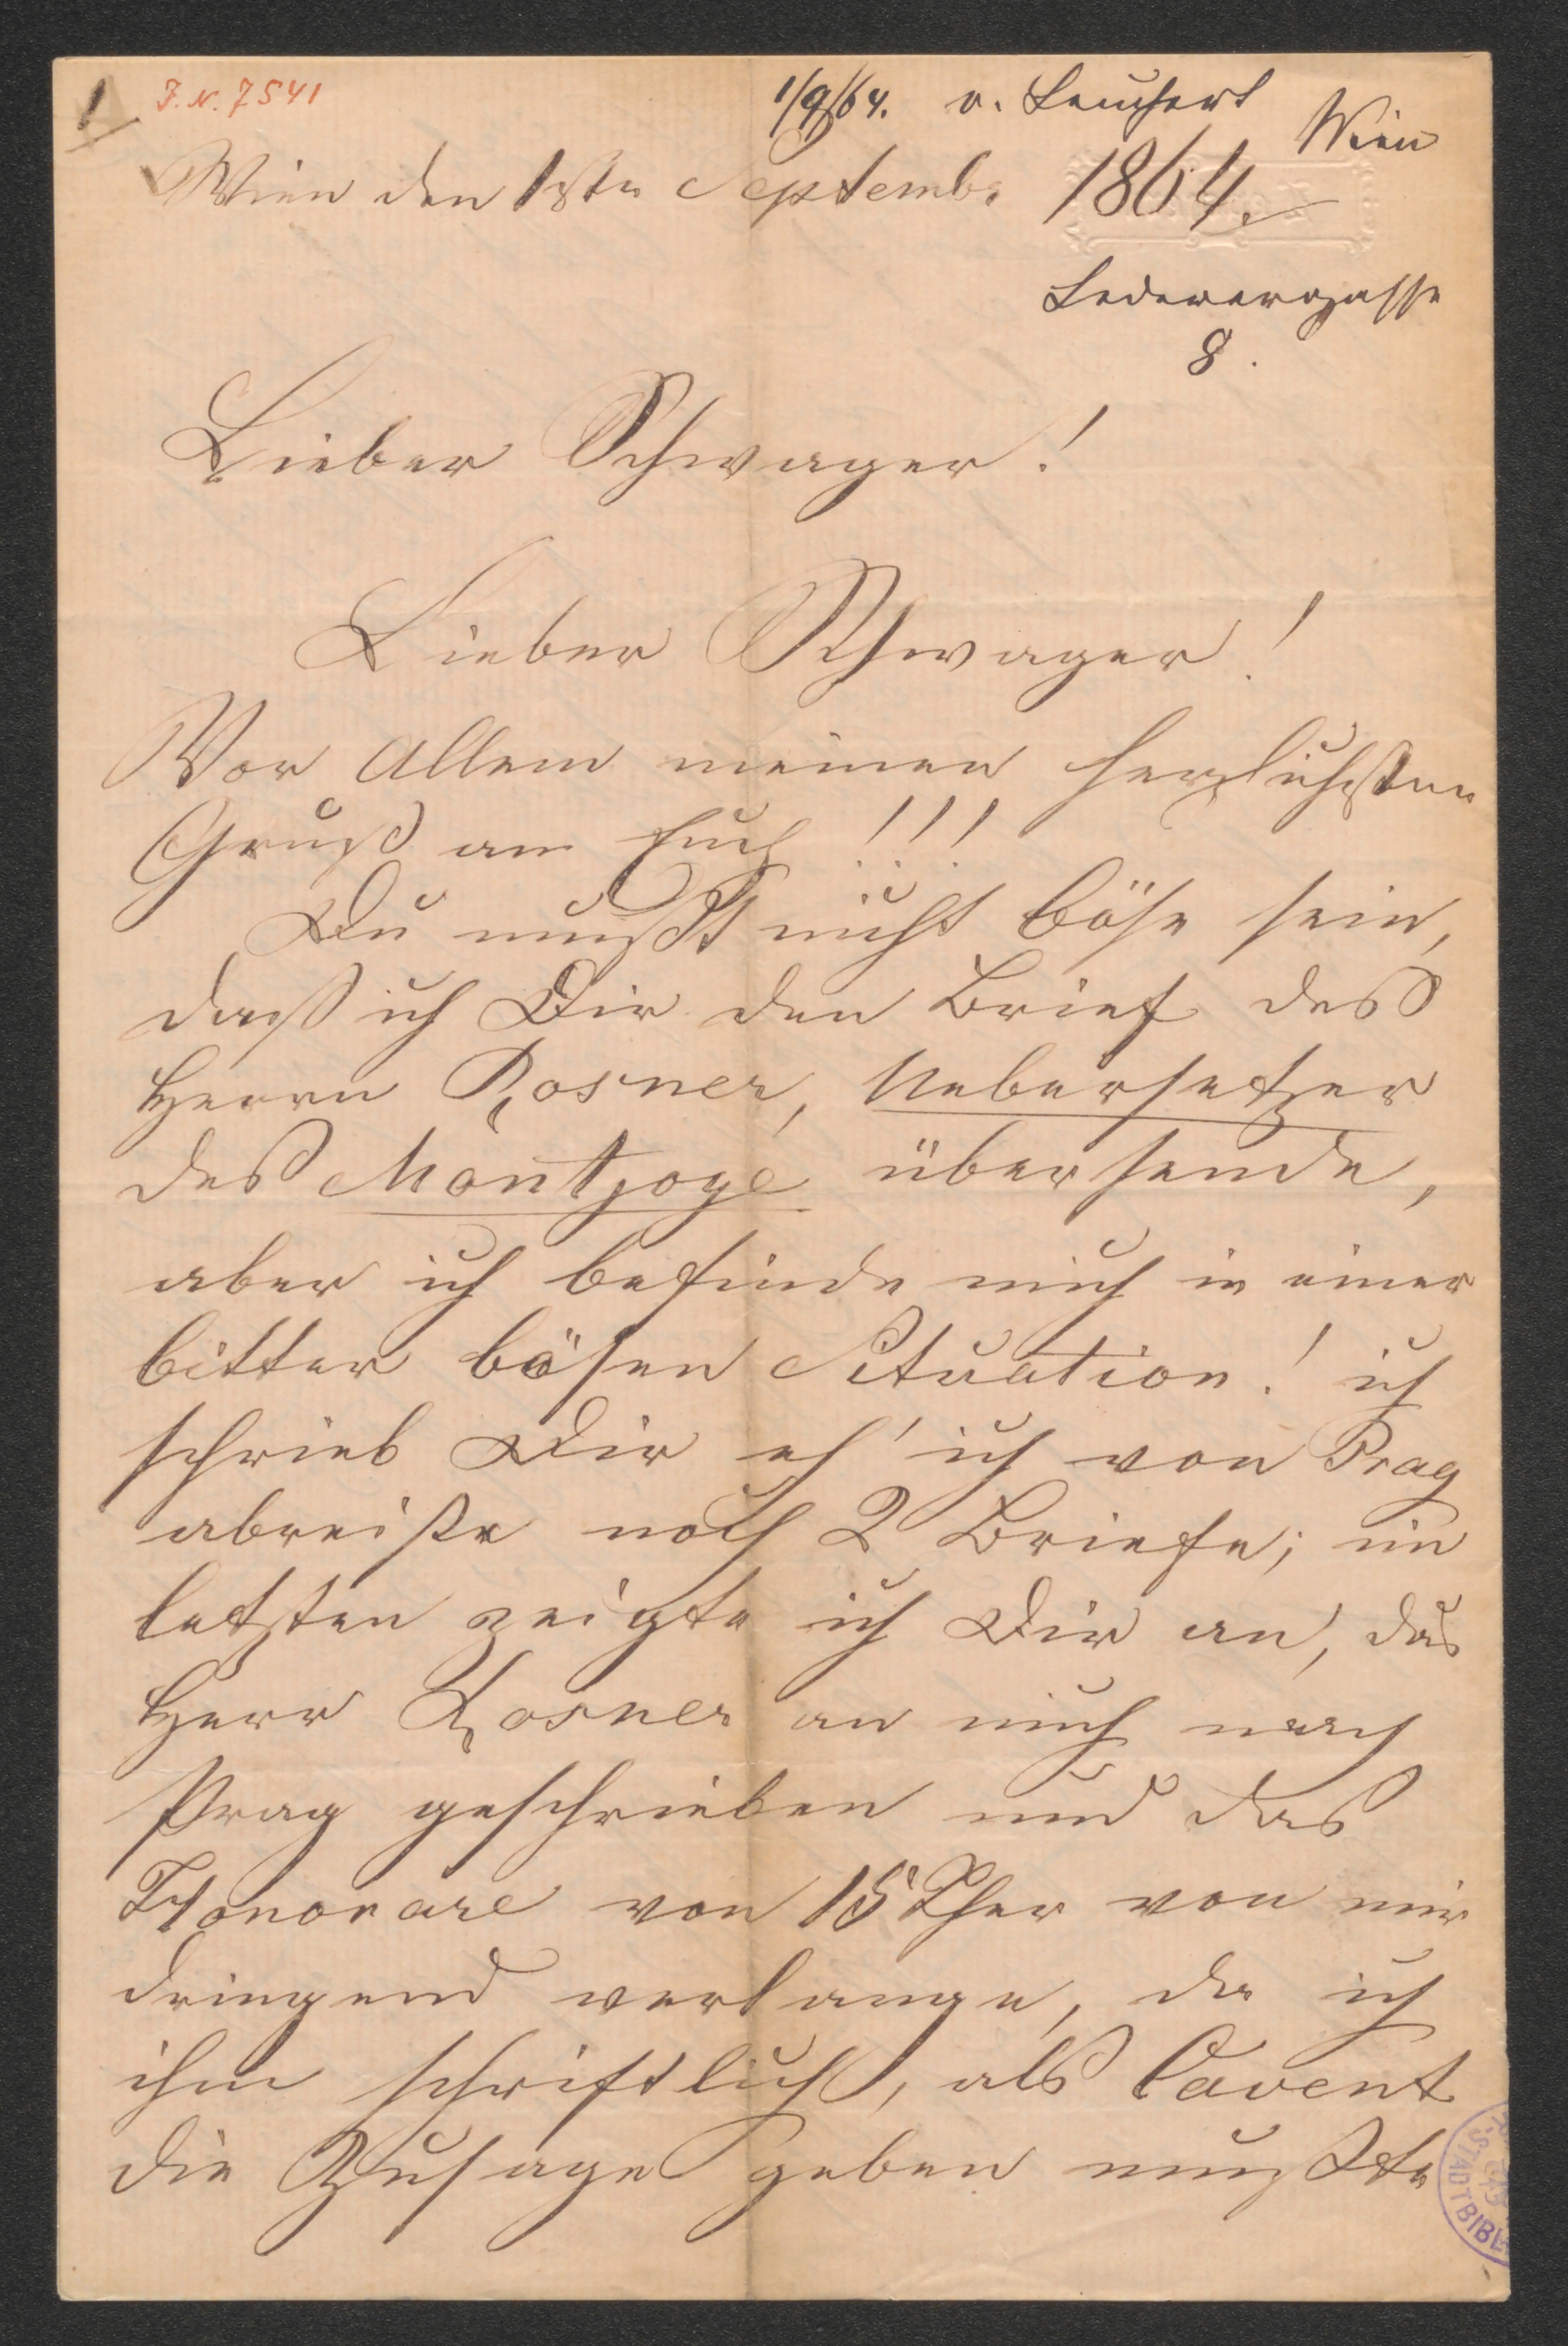 1
J. N. 7541
1/9/64. v. Leuchert
Wien
Wien den 1ste Septemb. 1864.
Lederergasse
8.
Lieber Schwager!
Lieber Schwager!
Vor Allem meinen herzlichsten
Gruß an Euch!!!
Du mußt nicht böse sein,
daß ich Dir den Brief des
Herrn Rosner, Uebersetzer
des Montjoye übersende,
aber ich befinde mich in einer
bitter bösen Situation! ich
schrieb Dir eh' ich von Prag
abreiste noch 2 Briefe; im
letzten zeigte ich Dir an, das
Herr Rosner an mich nach
Prag geschrieben und das
Honorare von 15 Thler von mir
dringend verlange, da ich
ihm schriftlich, als Cavent
die Zusage geben mußte
STADTBIBL